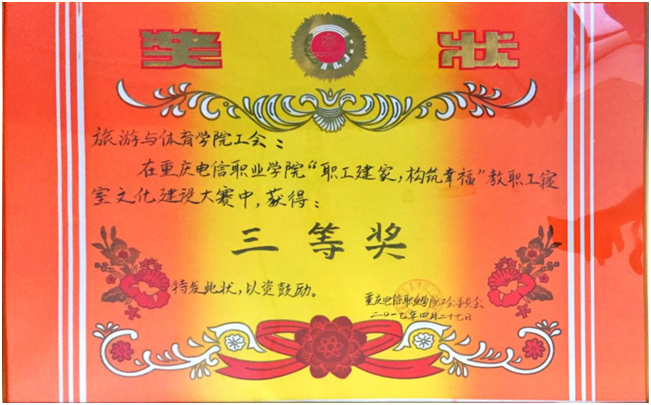 奖 状
旅游与体育学院工会：
在重庆电信职业学院“职工建家，构筑幸福”教职工寝
室文化建设大赛中，获得：
三等奖
特发此状，以资鼓励。
重庆电信职业学院工会委员会
二〇一七年四月二十七日